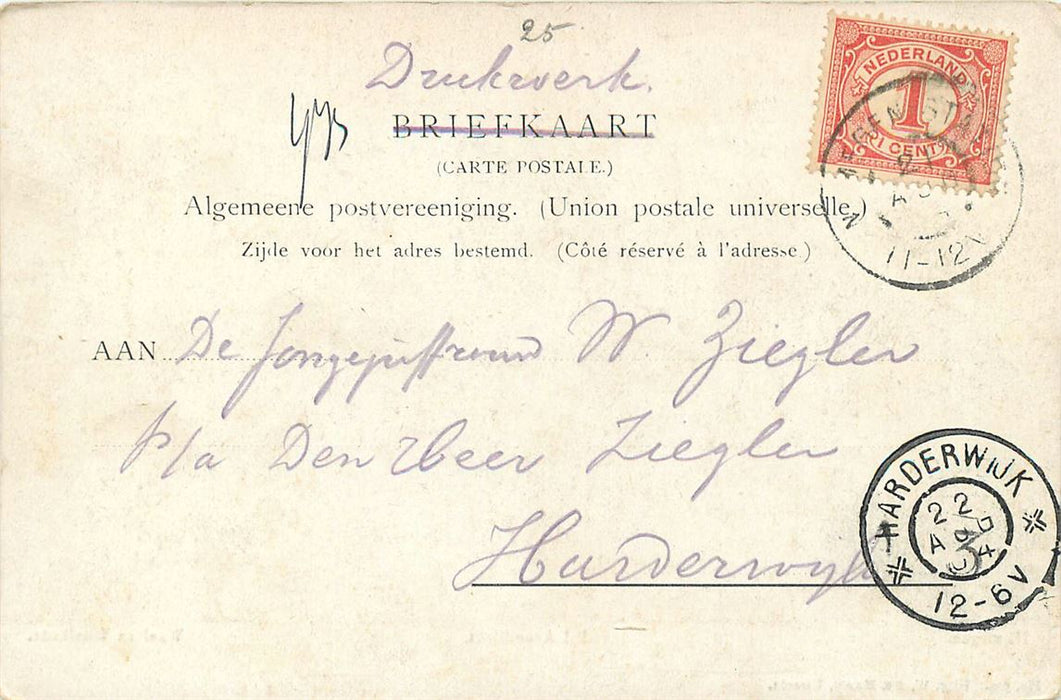 25
Drukwerk.
BRIEFKAART
(CARTE POSTALE.)
Algemeene postvereeniging. (Union postale universelle.)
Zijde voor het adres bestemd. (Côté réservé à l'adresse.)
NEDERLAND
1
CENT
11-12
AAN De Jongejuffrouw W. Ziegler
P/a Den Heer Ziegler
Harderwijk
HARDERWIJK
22
12-6V